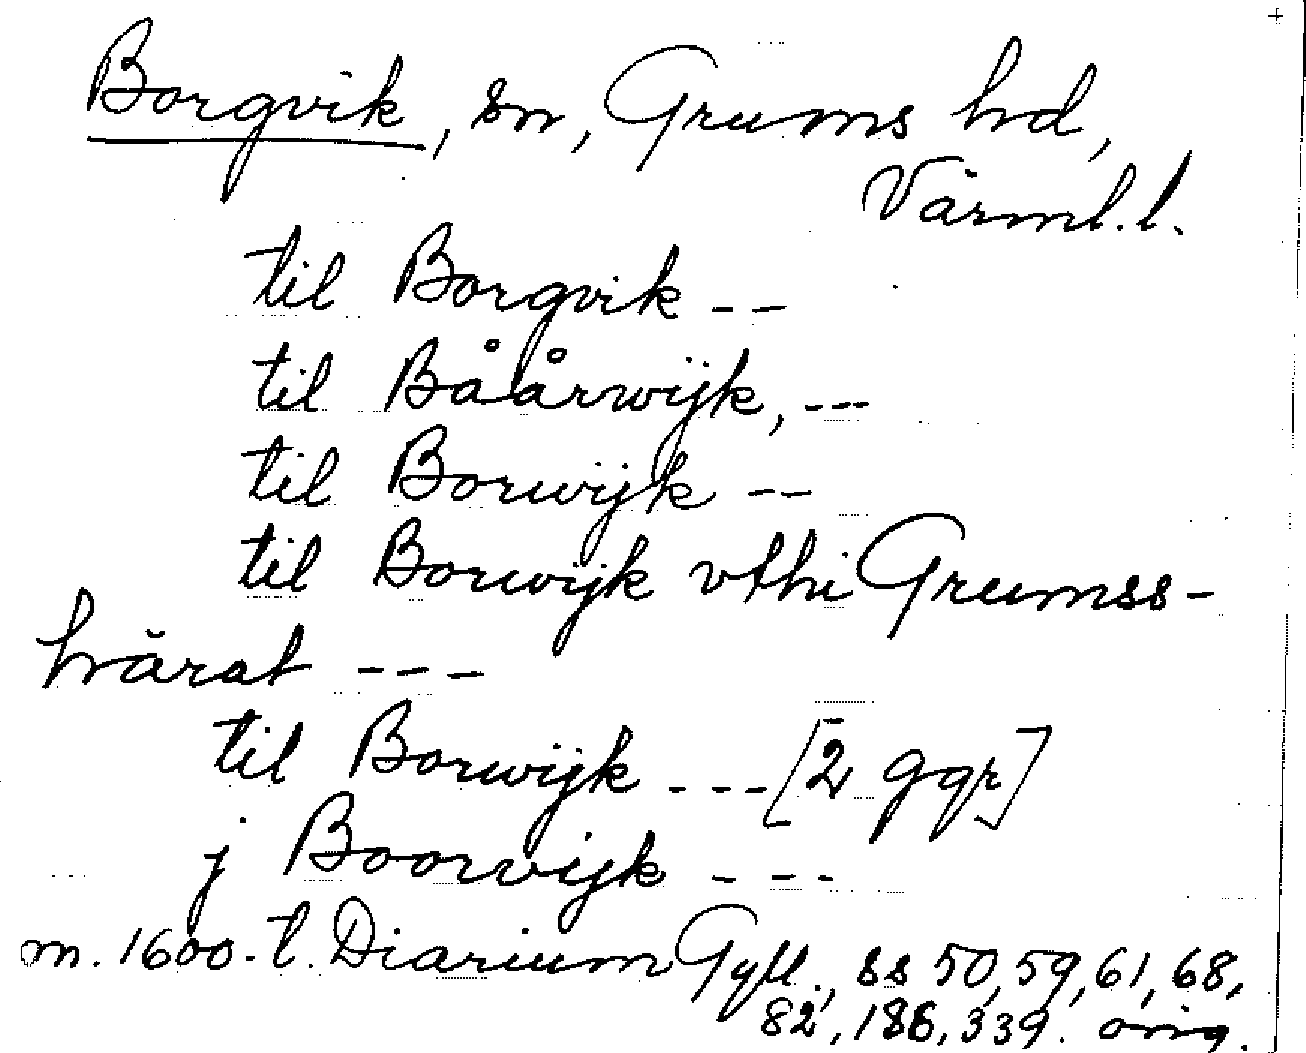 Borgvik, sn, Grums hd,
Värml.l.
til Borgvik --
til Båårwijk, ---
til Borwijk --
til Borwijk vthi Grumss-
härat ---
til Borwijk --- [2 ggr]
j Boorwijk ---
m. 1600-t. Diarium Gyll., ss 50, 59, 61, 68,
82, 186, 339. orig.